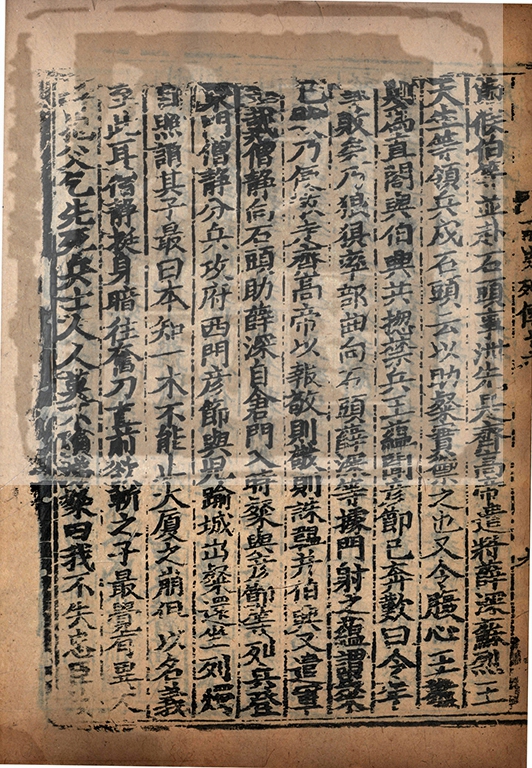 候伯等並赴石頭事洩先是齊高帝遣將薛深蘇烈王
天生等領兵戍石頭云以助粲實禦之也又令腹心王
則為直閤與伯興共惣禁兵王蘊聞彥節已奔歎曰今年
敗矣乃狼狽率部曲向石頭薛深等據門射之蘊謂粲
已乃便走齊高帝以報敬則敬則誅韞并伯興又遣軍
戴僧静向石頭助薛深自倉門入時粲與彥節等列兵登
東門僧静分兵攻府西門彥節與兒踰城出粲還坐列燭
自照謂其子最曰本知一木不能止大厦之崩但以名義
至此耳僧静挺身暗往奮刀直前欲斬之子最覺有異大
抱父乞先死兵士人人莫不隕涕粲曰我不失忠臣